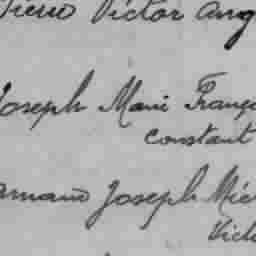 Victor Ang
Joseph Marie Franço
Constant
Armand Joseph Mic
Victo